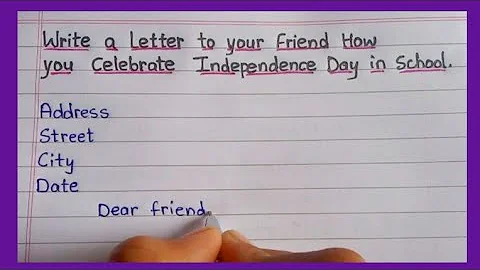 Write a Letter to your Friend How
you Celebrate Independence Day in School.
Address
Street
City
Date
Dear friend,